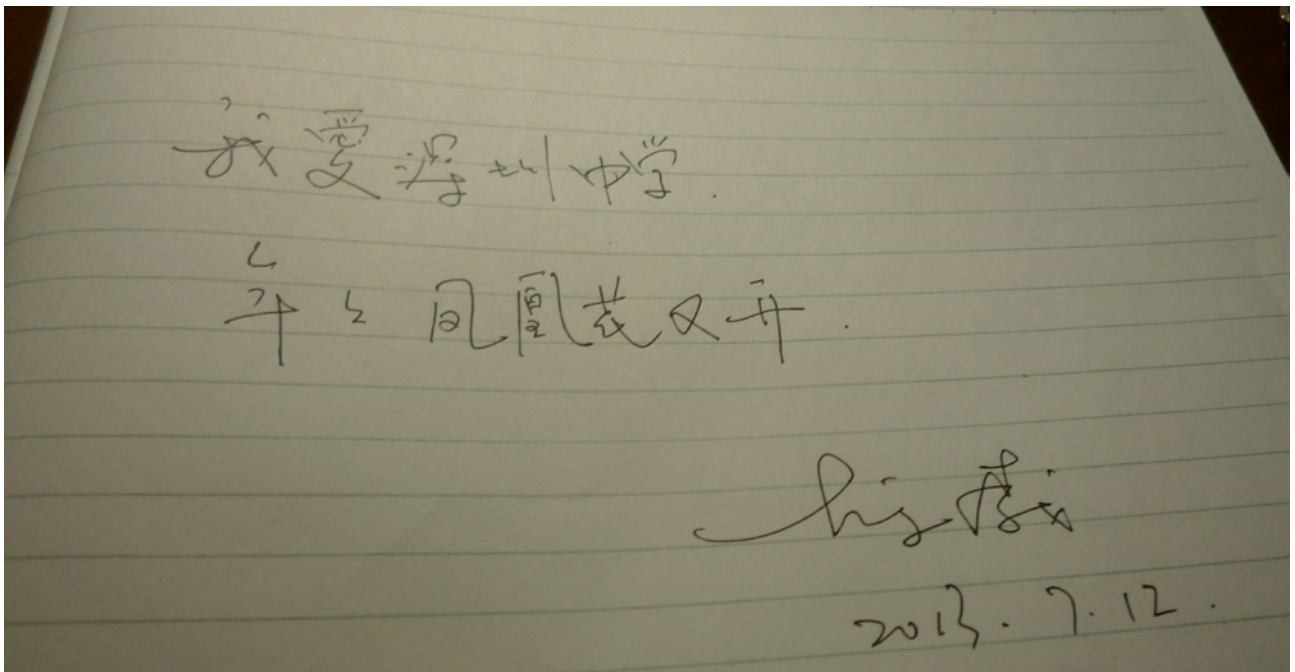 我爱深圳中学.
年年凤凰花又开.
2013.7.12.